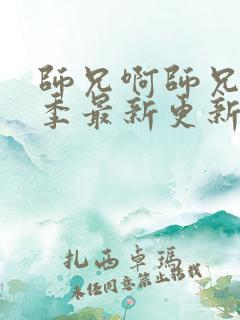 師兄啊師兄
季最新更新
扎西卓瑪
未经同意禁止转载